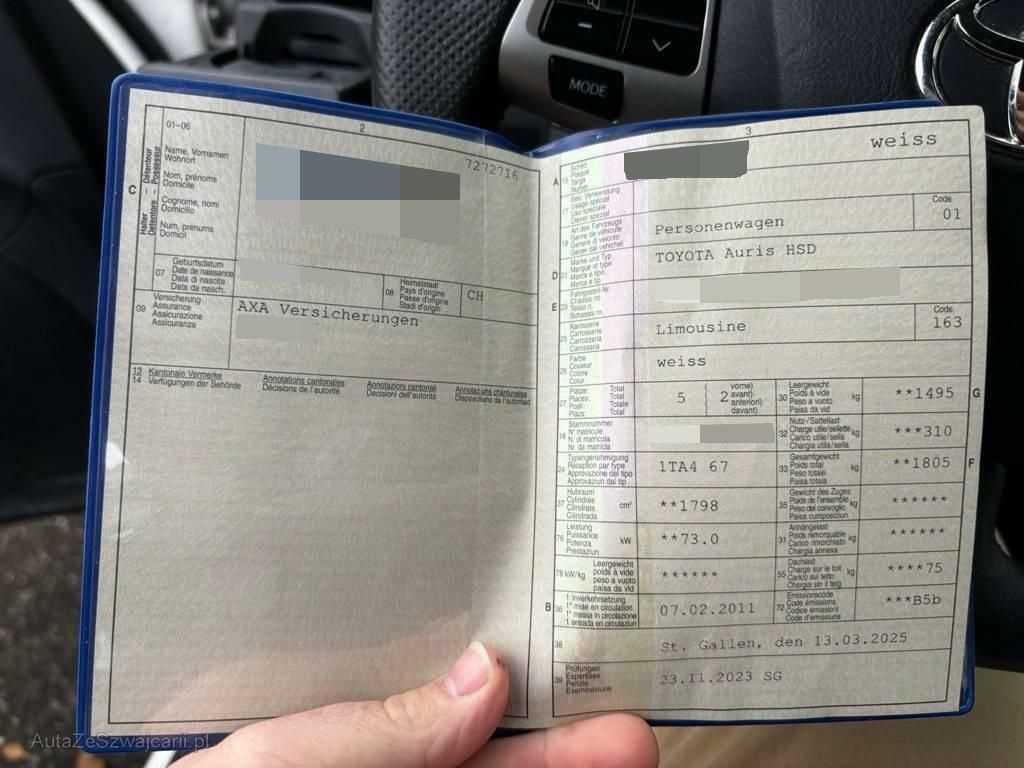 MODE
2
01–06
C
Halter – Détenteur
Detentore – Possessur
Name, Vornamen
Wohnort
Nom, prénoms
Domicile
Cognome, nomi
Domicilio
Num, prenums
Domicil
7272716
07
Geburtsdatum
Date de naissance
Data di nascita
Data da nasch.
08
Heimatstaat
Pays d'origine
Paese d'origine
Stadi d'origin
CH
09
Versicherung
Assurance
Assicurazione
Assicuranza
AXA Versicherungen
13
14
Kantonale Vermerke
Verfügungen der Behörde
Annotations cantonales
Décisions de l'autorité
Annotazioni cantonali
Decisioni dell'autorità
Annotaziuns chantunalas
Disposiziuns da l'autoritad
3
A
15
Schild
Plaque
Targa
Numer
weiss
17
Bes. Verwendung
Usage spécial
Uso speciale
Diever spezial
19
Art des Fahrzeugs
Genre de véhicule
Genere di veicolo
Gener dal vehichel
Personenwagen
Code
01
D
21
Marke und Typ
Marque et type
Marca e tipo
Marca e tip
TOYOTA Auris HSD
E
23
Fahrgestell-Nr.
Châssis no
Telaio n.
Schassis nr.
25
Karosserie
Carrosserie
Carrozzeria
Carossaria
Limousine
Code
163
26
Farbe
Couleur
Colore
Colur
weiss
27
Plätze: Total
Places: Total
Posti: Totale
Plazs: Total
5
2
vorne)
avant)
anteriori)
davant)
30
Leergewicht
Poids à vide
Peso a vuoto
Paisa da vid
kg
**1495
G
18
Stammnummer
N° matricule
N. di matricola
Nr. da matricla
32
Nutz-/Sattellast
Charge utile/sellette
Carico utile/sella
Chargia utila/sella
kg
***310
24
Typengenehmigung
Réception par type
Approvazione del tipo
Approvaziun dal tip
1TA4 67
33
Gesamtgewicht
Poids total
Peso totale
Paisa totala
kg
**1805
F
37
Hubraum
Cylindrée
Cilindrata
Cilindrada
cm³
**1798
35
Gewicht des Zuges
Poids de l'ensemble
Peso del convoglio
Paisa cumposiziun
kg
******
76
Leistung
Puissance
Potenza
Prestaziun
kW
**73.0
31
Anhängelast
Poids remorquable
Carico rimorchiato
Chargia annexa
kg
******
78 kW/kg
Leergewicht
poids à vide
peso a vuoto
paisa da vid
******
55
Dachlast
Charge sur le toit
Carico sul tetto
Chargia sin il tetg
kg
****75
B
36
1. Inverkehrsetzung
1re mise en circulation
1a messa in circolazione
1. entrada en circulaziun
07.02.2011
72
Emissionscode
Code émissions
Codice emissioni
Code d'emissiuns
***B5b
38
St. Gallen, den 13.03.2025
39
Prüfungen
Expertises
Perizie
Examinaziuns
23.11.2023 SG
AutaZeSzwajcarii.pl